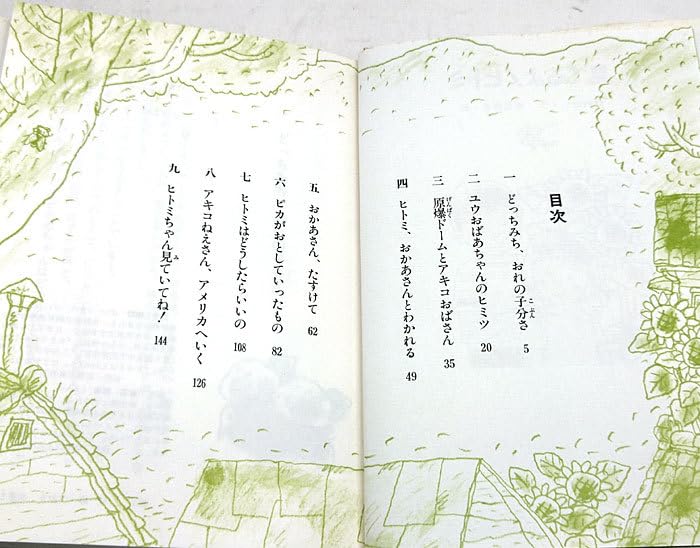 目次
一 どっちみち、おれの子分さ 5
二 ユウおばあちゃんのヒミツ 20
三 原爆ドームとアキコおばさん 35
四 ヒトミ、おかあさんとわかれる 49
五 おかあさん、たすけて 62
六 ピカがおとしていったもの 82
七 ヒトミはどうしたらいいの 108
八 アキコねえさん、アメリカへいく 126
九 ヒトミちゃん見ていてね! 144